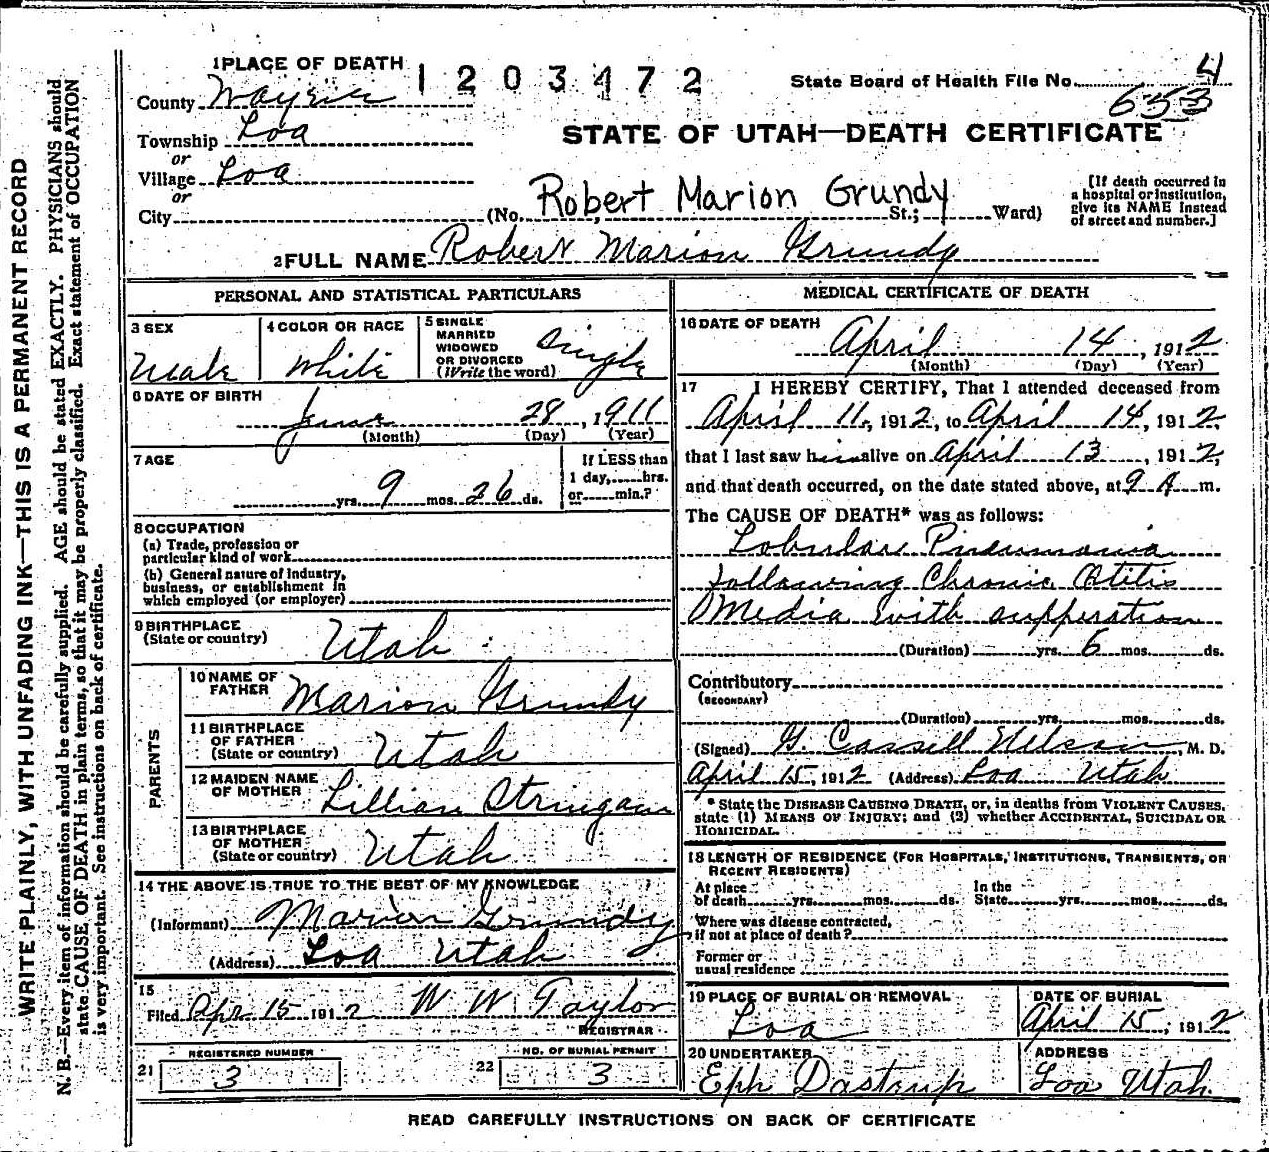 WRITE PLAINLY, WITH UNFADING INK—THIS IS A PERMANENT RECORD
N. B.—Every item of information should be carefully supplied. AGE should be stated EXACTLY. PHYSICIANS should
state CAUSE OF DEATH in plain terms, so that it may be properly classified. Exact statement of OCCUPATION
is very important. See instructions on back of certificate.
1 PLACE OF DEATH
1203472
State Board of Health File No. 4
653
County Wayne
Township Loa
or
Village Loa
or
City
STATE OF UTAH—DEATH CERTIFICATE
(No. Robert Marion Grundy St.; Ward)
[If death occurred in
a hospital or institution,
give its NAME instead
of street and number.]
2 FULL NAME Robert Marion Grundy
PERSONAL AND STATISTICAL PARTICULARS
3 SEX
Male
4 COLOR OR RACE
White
5 SINGLE
MARRIED
WIDOWED
OR DIVORCED
(Write the word)
Single
6 DATE OF BIRTH
June 28, 1911
(Month) (Day) (Year)
7 AGE
yrs. 9 mos. 26 ds.
If LESS than
1 day, hrs.
or min.?
8 OCCUPATION
(a) Trade, profession or
particular kind of work
(b) General nature of industry,
business, or establishment in
which employed (or employer)
9 BIRTHPLACE
(State or country)
Utah
PARENTS
10 NAME OF
FATHER
Marion Grundy
11 BIRTHPLACE
OF FATHER
(State or country)
Utah
12 MAIDEN NAME
OF MOTHER
Lillian Stringam
13 BIRTHPLACE
OF MOTHER
(State or country)
Utah
14 THE ABOVE IS TRUE TO THE BEST OF MY KNOWLEDGE
(Informant) Marion Grundy
(Address) Loa Utah
15
Filed Apr 15 1912 W W Taylor
REGISTRAR
21 REGISTERED NUMBER
3
22 NO. OF BURIAL PERMIT
3
MEDICAL CERTIFICATE OF DEATH
16 DATE OF DEATH
April 14, 1912
(Month) (Day) (Year)
17 I HEREBY CERTIFY, That I attended deceased from
April 11, 1912, to April 14, 1912
that I last saw him alive on April 13, 1912,
and that death occurred, on the date stated above, at 9 A m.
The CAUSE OF DEATH* was as follows:
Lobular Pneumonia
following Chronic Otitis
Media with supperation
(Duration) yrs. 6 mos. ds.
Contributory
(SECONDARY)
(Duration) yrs. mos. ds.
(Signed) G. Cassell Nelson M. D.
April 15, 1912 (Address) Loa Utah
* State the DISEASE CAUSING DEATH, or, in deaths from VIOLENT CAUSES,
state (1) MEANS OF INJURY; and (2) whether ACCIDENTAL, SUICIDAL OR
HOMICIDAL.
18 LENGTH OF RESIDENCE (FOR HOSPITALS, INSTITUTIONS, TRANSIENTS, OR
RECENT RESIDENTS)
At place
of death yrs. mos. ds.
In the
State yrs. mos. ds.
Where was disease contracted,
if not at place of death?
Former or
usual residence
19 PLACE OF BURIAL OR REMOVAL
Loa
DATE OF BURIAL
April 15, 1912
20 UNDERTAKER
Eph Dastrup
ADDRESS
Loa Utah.
READ CAREFULLY INSTRUCTIONS ON BACK OF CERTIFICATE